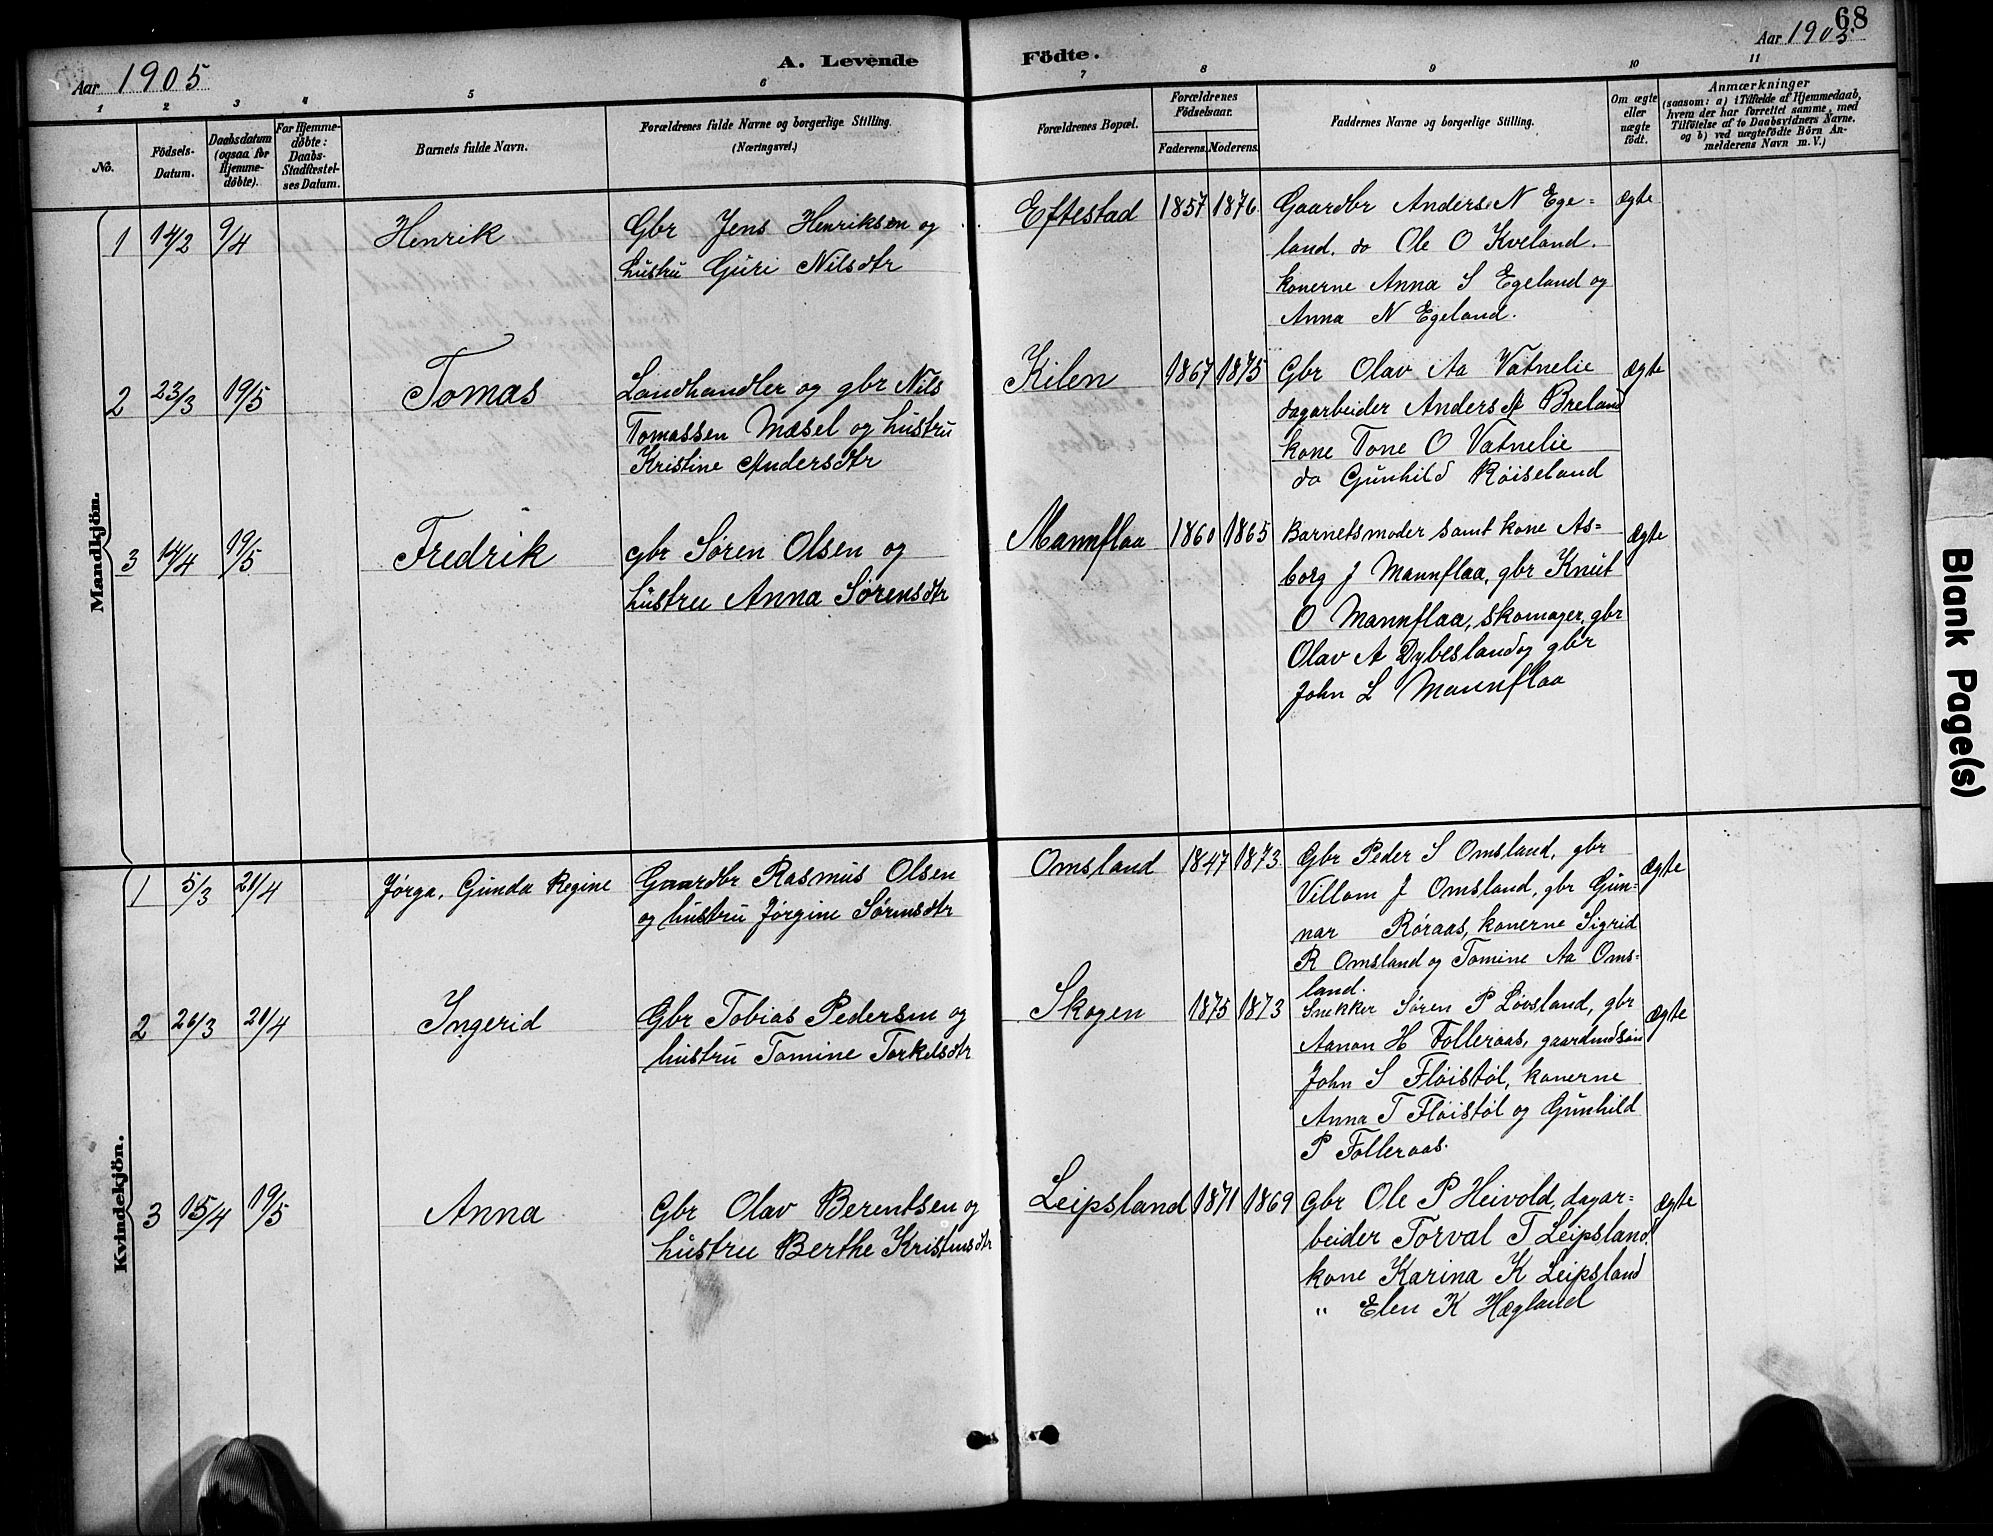 68
Aar 1905
A. Levende Födte.
Aar 1905
1 2 3 4 5 6 7 8 9 10 11
No.
Födsels-Datum.
Daabsdatum (ogsaa for Hjemmedöbte).
For Hjemmedöbte: Daabs-Stadfæstelses Datum.
Barnets fulde Navn.
Forældrenes fulde Navne og borgerlige Stilling.
(Næringsvei.)
Forældrenes Bopæl.
Forældrenes Födselsaar.
Faderens. Moderens.
Faddernes Navne og borgerlige Stilling.
Om ægte eller uægte födt.
Anmærkninger
(saasom: a) i Tilfælde af Hjemmedaab,
hvem der har forrettet samme, med
Tilföielse af to Daabsvidners Navne,
og b) ved uægtefödte Börn An-
melderens Navn m. V.)
Mandkjön.
1 14/2 9/4 Henrik
Gbr Jens Henriksen og
hustru Guri Nilsdtr
Eftestad 1857 1876
Gaardbr Anders N Ege-
land. do Ole O Kveland.
konerne Anna S Egeland og
Anna N Egeland.
ægte
2 23/3 19/5 Tomas
Landhandler og gbr Nils
Tomassen Mæsel og hustru
Kristine Andersdtr
Kilen 1867 1875
Gbr Olav Aa Vatnelie
dagarbeider Anders A Breland
kone Tone O Vatnelie
do Gunhild Røiseland
ægte
3 14/4 19/5 Fredrik
gbr Søren Olsen og
hustru Anna Sørensdtr
Mannflaa 1860 1865
Barnets moder samt kone As-
borg J Mannflaa, gbr Knut
O Mannflaa, skomager, gbr
Olav A Dybesland og gbr
John L Mannflaa
ægte
Kvindekjön.
1 5/3 21/4 Jørga, Gunda Regine
Gaardbr Rasmus Olsen
og hustru Jørgine Sørensdtr
Omsland 1847 1873
Gbr Peder S Omsland, gbr
Villom J Omsland, gbr Gun-
nar Røraas, konerne Sigrid
R Omsland og Tomine Aa Oms-
land.
ægte
2 26/3 21/4 Ingerid
Gbr Tobias Pedersen og
hustru Tomine Torkelsdtr
Skogen 1875 1873
Snekker Søren P Løvsland, gbr
Aanon H Folleraas, gaardmdsøn
John S Fløistøl, konerne
Anna T Fløistøl og Gunhild
P Folleraas.
ægte
3 15/4 19/5 Anna
Gbr Olav Berentsen og
hustru Berthe Kristensdtr
Leipsland 1871 1869
Gbr Ole P Heivold, dagar-
beider Torval T Leipsland.
kone Karina K Leipsland
" Elen K Hægland
ægte
Blank Page(s)